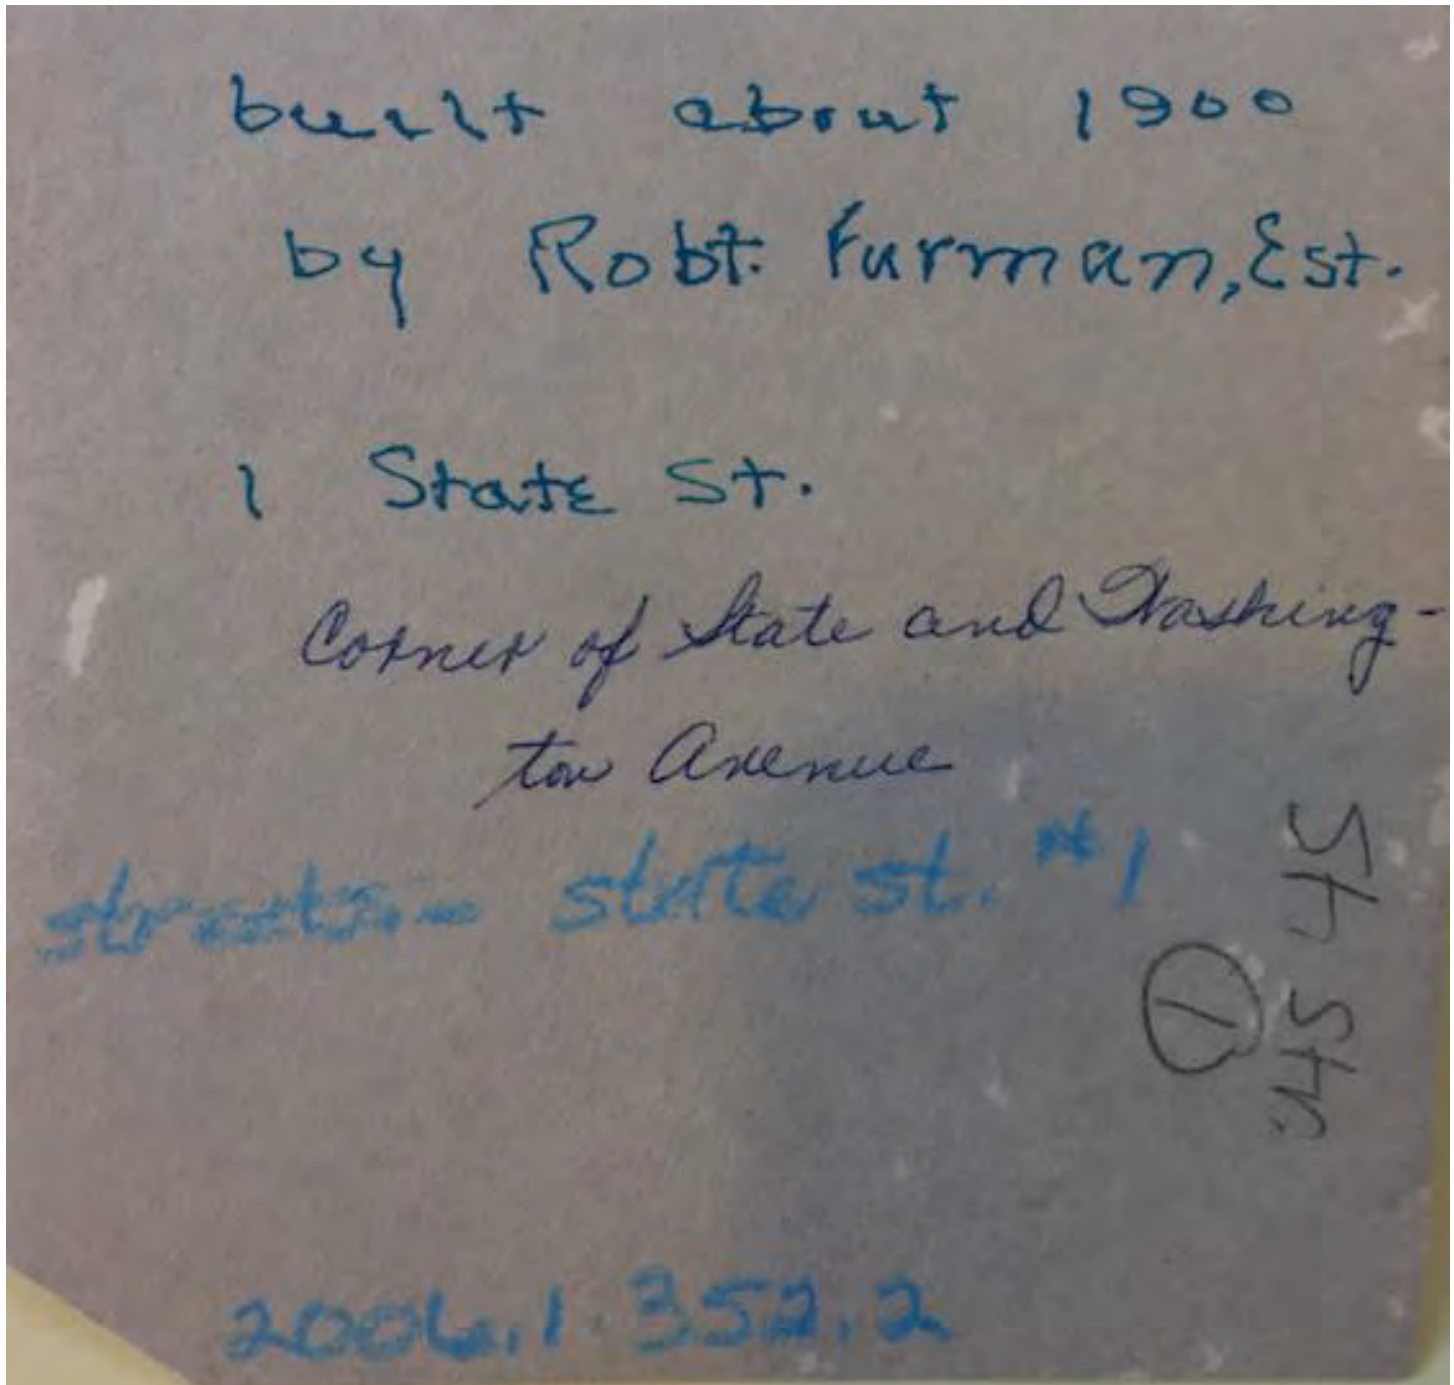 built about 1900
by Robt. Furman, Est.
1 State St.
Corner of State and Washing-
ton Avenue
streets - state st. #1
45 45
1
2006.1.352.2